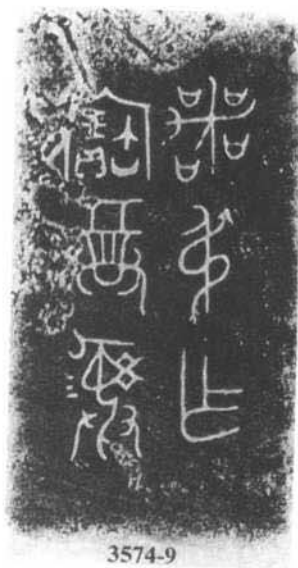 噩叔乍
寶尊彝
3574-9